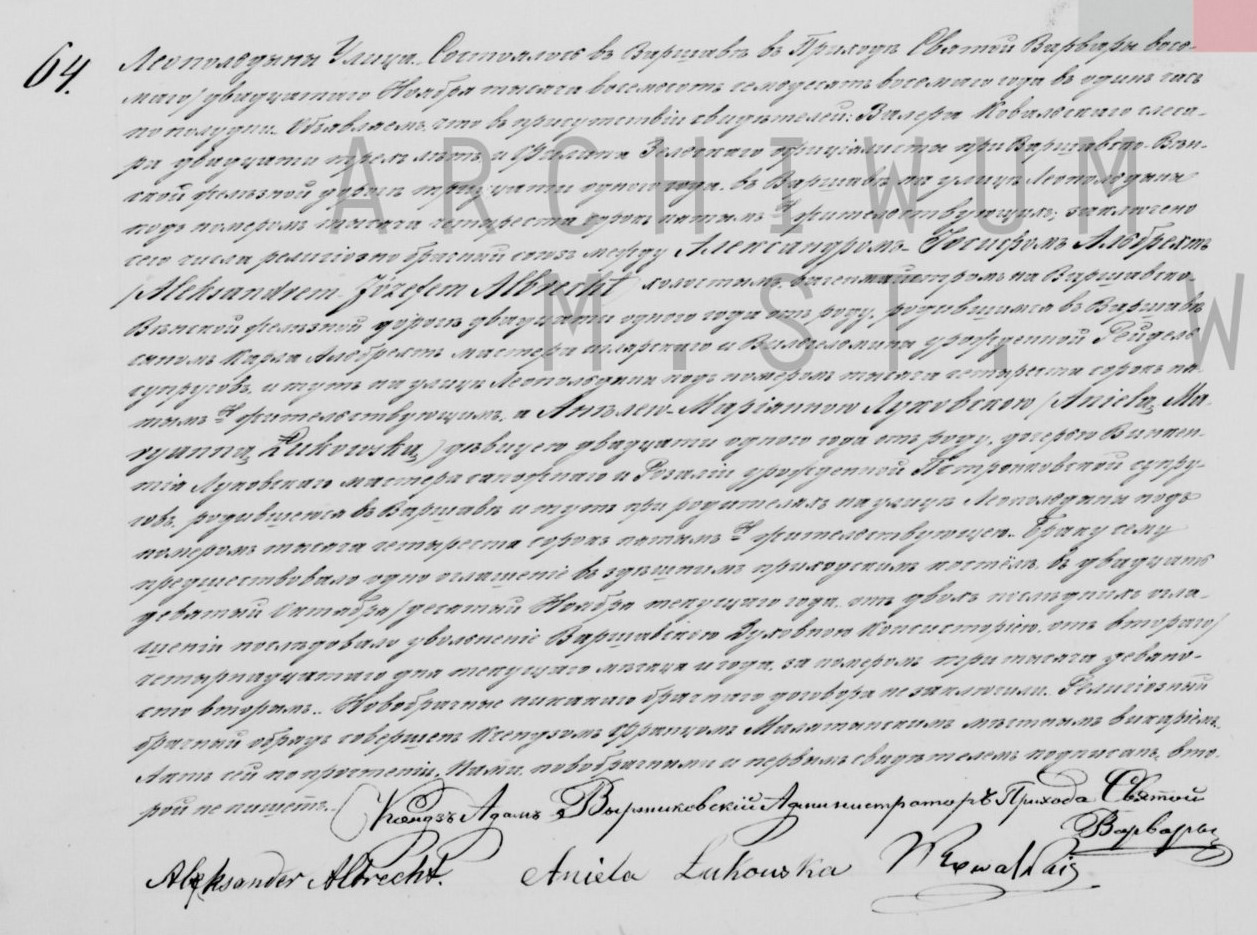 64.
Леопольдына Улица. Состоялось въ Варшавѣ въ Приходѣ Святой Варвары вось-
маго/двадцатаго Ноября тысяча восемьсотъ семьдесятъ восьмаго года въ одинъ часъ
по полудни. Объявляемъ, что въ присутствіи свидѣтелей: Валера Ковальскаго слеса-
ря двадцати трехъ лѣтъ, и Филипа Зелескаго оффиціалисты при Варшавско-Вѣн-
ской желѣзной дорогѣ тридцати одного года, въ Варшавѣ на улицѣ Леопольдына
подъ номеромъ тысяча четыреста сорокъ пятымъ жительствующихъ; заключенъ
сего числа религіозно брачный союзъ между Александромъ-Іосифомъ Альбрехтъ
/Aleksandrem-Józefem Albrecht/ холостымъ, на Варшавско
Вѣнской желѣзной дорогѣ двадцати одного года отъ роду, родившимся въ Варшавѣ
сыномъ Карла Альбрехтъ мастера и Вильгельмины урожденной Рейдель
супруговъ, и тутъ на улицѣ Леопольдына подъ номеромъ тысяча четыреста сорокъ пя-
тымъ жительствующимъ, а Анѣлею-Маріанною Луковскою /Anielą Ma-
ryanną Łukowską/ дѣвицею двадцати одного года отъ роду, дочерью Викен-
тія Луковскаго мастера сапожнаго и Розаліи урожденной Петроньковской супру-
говъ, родившеюся въ Варшавѣ и тутъ при родителяхъ на улицѣ Леопольдына подъ
номеромъ тысяча четыреста сорокъ пятымъ жительствующею. Браку сему
предшествовало одно оглашеніе въ здѣшнимъ приходскимъ костёлѣ въ двадцать
девятый Октября/десятый Ноября текущаго года, отъ двухъ послѣднихъ огла-
шеній послѣдовало увольненіе Варшавскою Духовною Консисторіею, отъ втораго/
четырнадцатаго дня текущаго мѣсяца и года, за номеромъ три тысяча девяно-
сто вторымъ. Новобрачные никакаго брачнаго договора не заключили. Религіозный
брачный обрядъ совершенъ Ксендзомъ Францомъ Малятынскимъ мѣстнымъ викаріемъ.
Актъ сей по прочтеніи, Нами, новобрачными и первымъ свидѣтелемъ подписанъ, вто-
рой не пишетъ.
Ксёндзъ Адамъ Выржиковскій Администраторъ Прихода Святой
Варвары
Aleksander Albrecht. Aniela Łukowska WKowalski
ARCHIWUM
M. ST. W